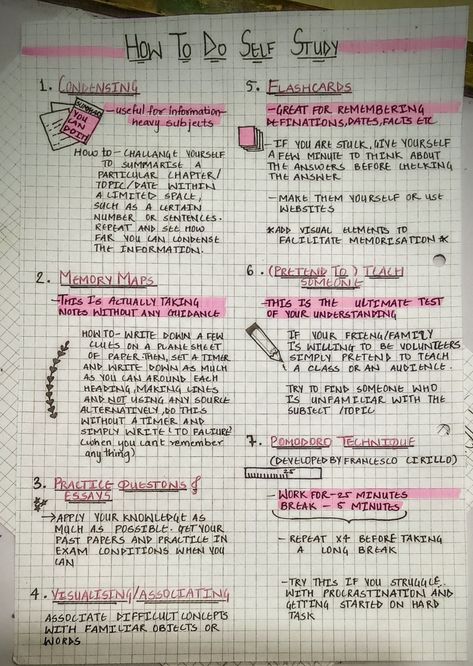 How To Do Self Study
1. Condensing
SUMMARY
YOU
CAN
DO IT!
- useful for information-
heavy subjects
How to - Challange yourself
to summarise a
particular chapter/
topic/date within
a limited space,
such as a certain
number or sentences.
Repeat and see how
far you can condense
the information.
2. Memory Maps
- This is actually taking
notes without any guidance
How to - Write down a few
clues on a plane sheet
of paper then, set a timer
and write down as much
as you can around each
heading, making lines
and not using any source
alternatively, do this
without a timer and
simply write 'to faliure'
(when you cant remember
any thing)
3. Practice Questons &
Essays
→ Apply your knowledge as
much as possible. Get your
past papers and practice in
exam conditions when you
can
4. Visualising/Associating
Associate difficult concepts
with familiar objects or
words
5. Flashcards
- Great for remembering
definations, dates, facts etc
- If you are stuck, give yourself
a few minute to think about
the answers before checking
the answer
- Make them yourself or use
websites
*Add visual elements to
facilitate memorisation *
6. (Pretend To) Teach
Someone
- This is the ultimate test
of your understanding
If your frieng/family
is willing to be volunteers
simply pretend to teach
a class or an audience.
Try to find someone who
is unfamiliar with the
subject/topic
7. Pomodoro Technique
(Developed by Francesco Cirillo)
25
- Work for - 25 minutes
Break - 5 minutes
- Repeat x4 before taking
a long break
- Try this if you struggle
with procrastination and
getting started on hard
task